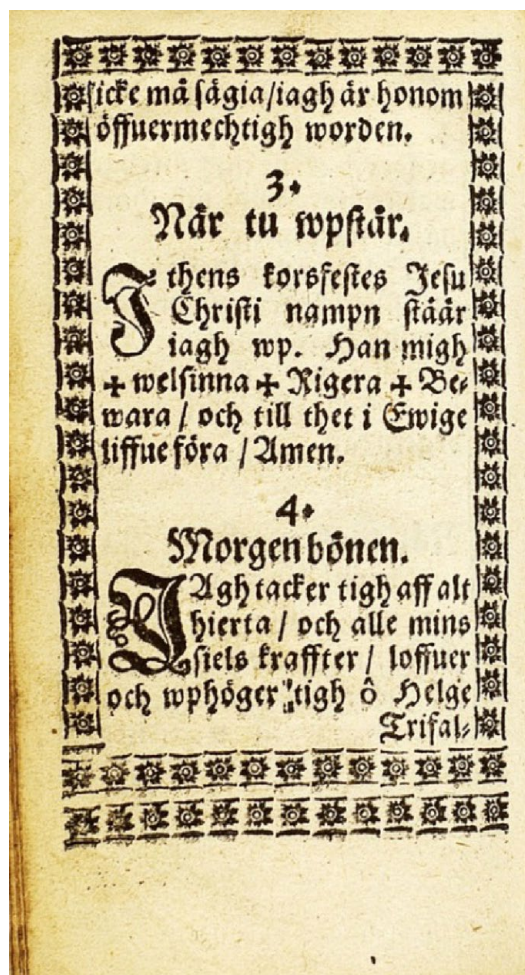 icke må sägia/iagh är honom
öffuermechtigh worden.
3.
När tu wpstär.
I thens korsfestes Jesu
Christi nampn stäär
iagh wp. Han migh
✠ welsinna ✠ Rigera ✠ Be-
wara / och till thet i Ewige
liffue föra / Amen.
4.
Morgen bönen.
JAgh tacker tigh aff alt
hierta / och alle mins
siels kraffter / loffuer
och wphöger tigh ô Helge
Trifal-